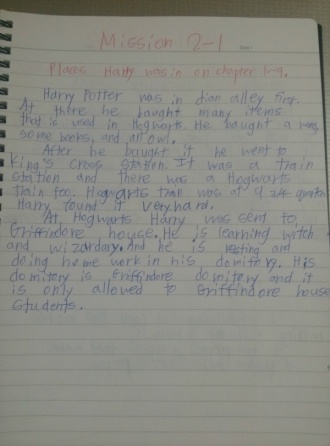 Mission 2-1
Places Harry was in on chapter
Harry Potter was in dian alley first.
At there he baught many items
that is used in Hogwarts. He baught a
some books, and an owl.
After he baught it he went to
King's Cross Station. It was a train
station and there was a Hogwarts
train too. Hogwarts train was at 9
Harry found it very hard.
At Hogwarts Harry was sent to
Griffindore house. He is learning witch
and wizardary. And he is resting and
doing home work in his domitory. His
domitory is Griffindore domitory and it
is only allowed to Griffindore house
students.